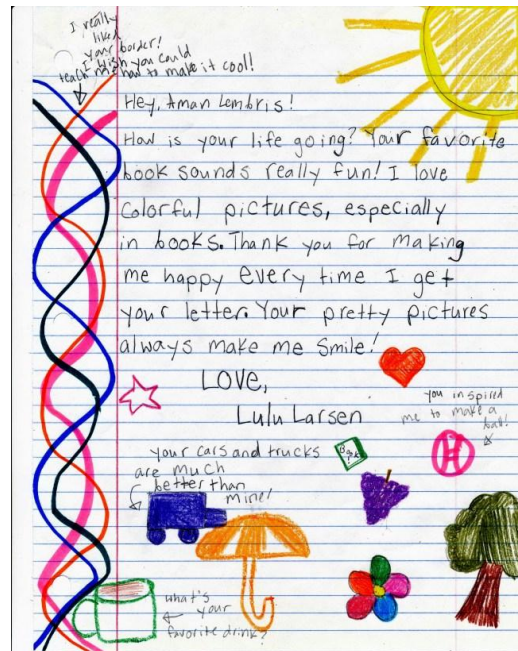 I really
liked
your border!
I wish you could
teach me how to make it cool!
Hey, Aman Lembris!
How is your life going? Your favorite
book sounds really fun! I love
colorful pictures, especially
in books. Thank you for making
me happy every time I get
your letter. Your pretty pictures
always make me smile!
LOVE,
Lulu Larsen
you inspired
me to make a
ball!
your cars and trucks
are much
better than
mine!
what's
your
favorite drink?